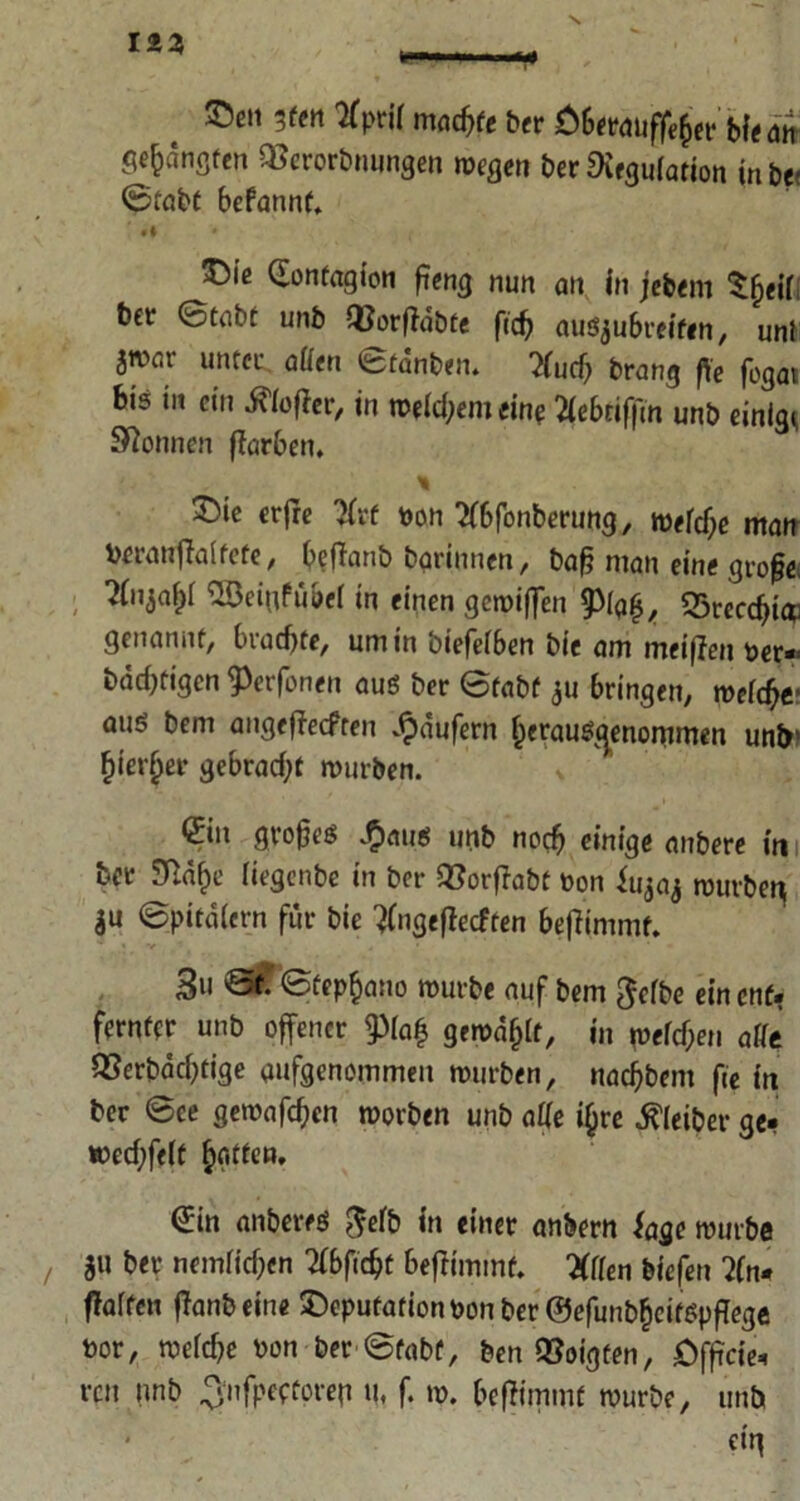 122
Den 3ten April machte der Oberauffeher die an
gehängten Verordnungen wegen der Regulation in de
Stadt bekannt.
Die Contagion fieng nun an in jedem Theil
der Stadt und Vorstädte sich auszubreiten, und
zwar unter allen Ständen. Auch drang sie sogar
bis in ein Kloster, in welchem eine Aebtissin und einige
Nonnen starben.
Die erste Art von Absonderung, welche man
veranstaltete, bestand darinnen, daß man eine große
Anzahl Weinkübel in einen gewissen Platz, Brecchia
genannt, brachte, um in dieselben die am meisten ver-
dächtigen Personen aus der Stadt zu bringen, welche
aus dem angesteckten Häusern herausgenommen und
hierher gebracht wurden.
Ein großes Haus und noch einige andere in
der Nähe liegende in der Vorstadt von Luzaz wurden
zu Spitälern für die Angesteckten bestimmt.
Zu St. Stephano wurde auf dem Felde ein ent-
fernter und offener Platz gewählt, in welchen alle
Verdächtige aufgenommen wurden, nachdem sie in
der See gewaschen worden und alle ihre Kleider ge-
wechselt hatten.
Ein anderes Feld in einer andern Lage wurde
zu der nemlichen Absicht bestimmt. Allen diesen An-
stalten stand eine Deputation von der Gesundheitspflege
vor, welche von der Stadt, den Voigten, Officie-
ren und Inspectoren u. s. w. bestimmt wurde, und
ein